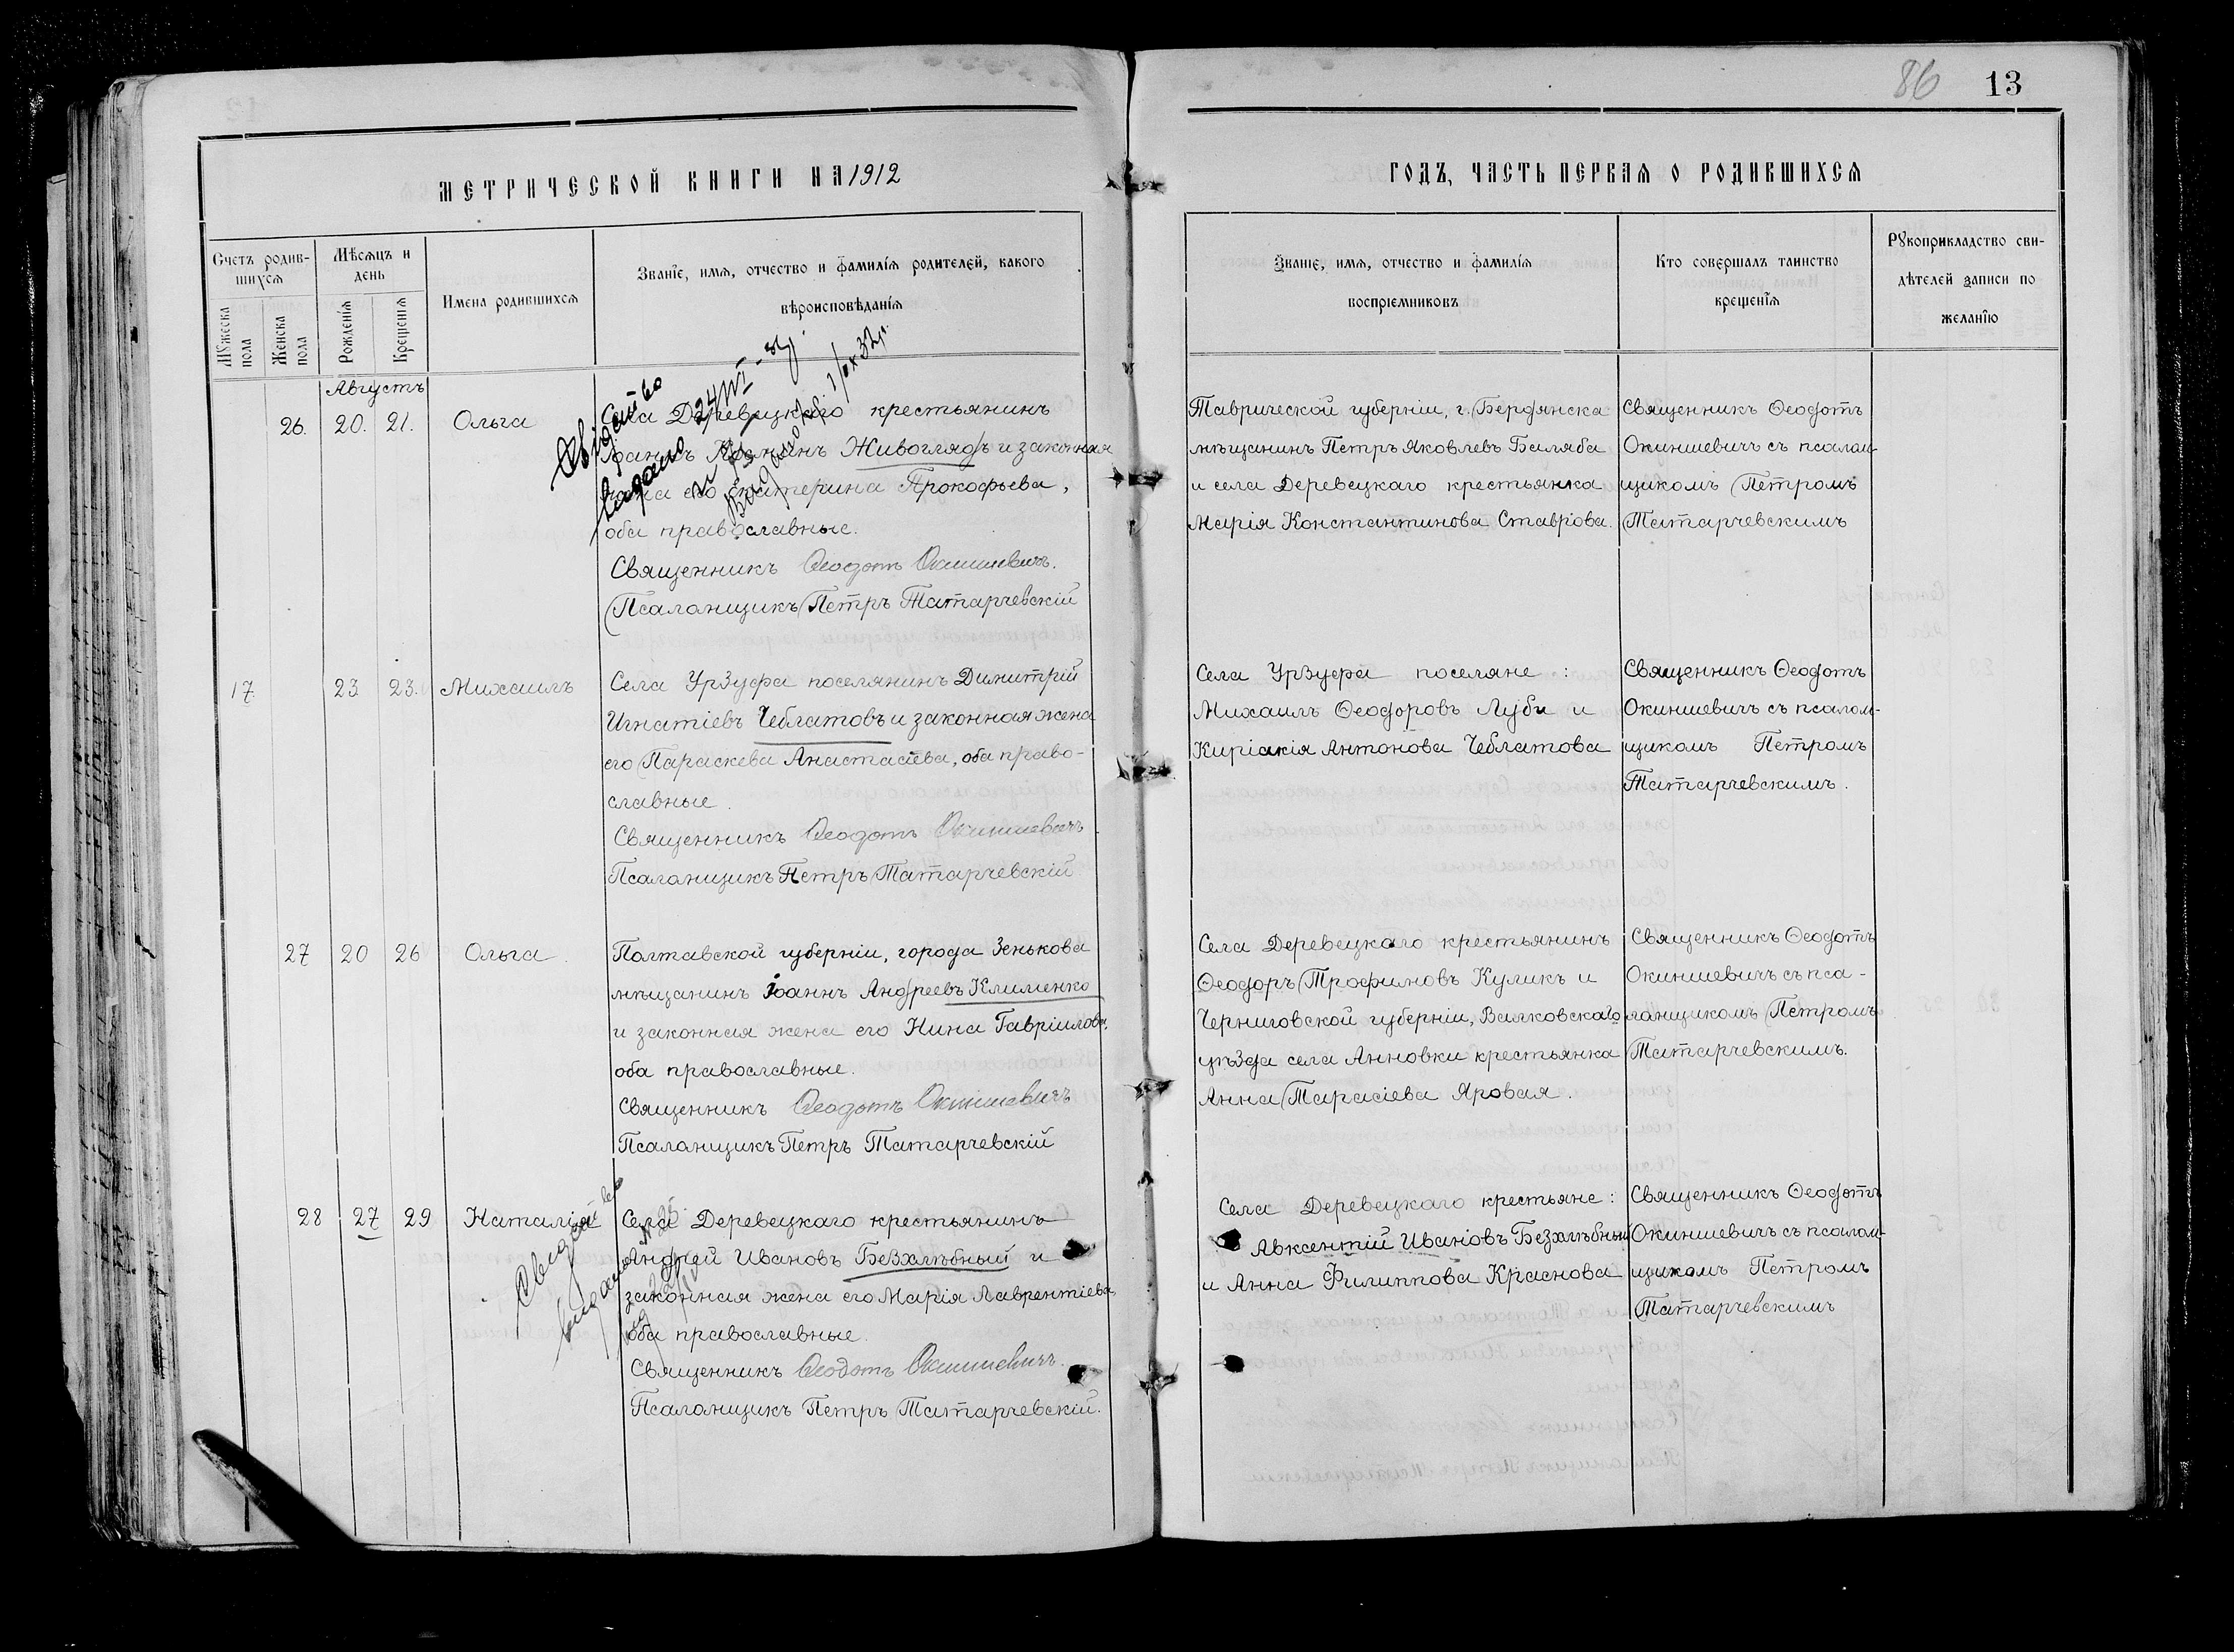 86 13
МЕТРИЧЕСКОЙ КНИГИ НА 1912
ГОДЪ, ЧАСТЬ ПЕРВАЯ О РОДИВШИХСЯ
Счетъ родив-
шихся
Мужеска
пола
Женска
пола
Мѣсяцъ и
день
Рожденія
Крещенія
Имена родившихся
Званіе, имя, отчество и фамилія родителей, какого
вѣроисповѣданія
Званіе, имя, отчество и фамилія
воспріемниковъ
Кто совершалъ таинство
крещенія
Рукоприкладство сви-
дѣтелей записи по
желанію
Августъ
26. 20. 21. Ольга
Села Деревецкаго крестьянинъ
Живоглядъ и законная
жена его Екатерина Прокофьева,
оба православные.
Священникъ Ѳеодотъ Окиншевичъ.
Псаломщикъ Петръ Татарчевскій
Таврической губерніи, г. Бердянска
мѣщанинъ Петръ Яковлевъ Баляба
и села Деревецкаго крестьянка
Марія Константинова Ставрова.
Священникъ Ѳеодотъ
Окиншевичъ съ псалом-
щикомъ Петромъ
Татарчевскимъ
17 23 23. Михаилъ
Села Урзуфа поселянинъ Димитрій
Игнатіевъ Чеблатовъ и законная жена
его Параскева Анастасіева, оба право-
славные.
Священникъ Ѳеодотъ Окиншевичъ
Псаломщикъ Петръ Татарчевскій
Села Урзуфа поселяне:
Михаилъ Ѳеодоровъ Луби и
Киріакія Антонова Чеблатова
Священникъ Ѳеодотъ
Окиншевичъ съ псалом-
щикомъ Петромъ
Татарчевскимъ.
27 20 26 Ольга.
Полтавской губерніи, города Зенькова
мѣщанинъ Іоаннъ Андреевъ Клименко
и законная жена его Нина Гавріилова,
оба православные.
Священникъ Ѳеодотъ Окиншевичъ
Псаломщикъ Петръ Татарчевскій
Села Деревецкаго крестьянинъ
Ѳеодоръ Трофимовъ Куликъ и
Черниговской губерніи, Валковскаго
уѣзда села Анновки крестьянка
Анна Тарасіева Яровая.
Священникъ Ѳеодотъ
Окиншевичъ съ пса-
ломщикомъ Петромъ
Татарчевскимъ.
28 27 29 Наталія
Села Деревецкаго крестьянинъ
Андрей Ивановъ Безхлѣбный и
законная жена его Марія Лаврентіева
оба православные.
Священникъ Ѳеодотъ Окиншевичъ.
Псаломщикъ Петръ Татарчевскій.
Села Деревецкаго крестьяне:
Авксентій Ивановъ Безхлѣбный
и Анна Филиппова Краснова
Священникъ Ѳеодотъ
Окиншевичъ съ псалом-
щикомъ Петромъ
Татарчевскимъ